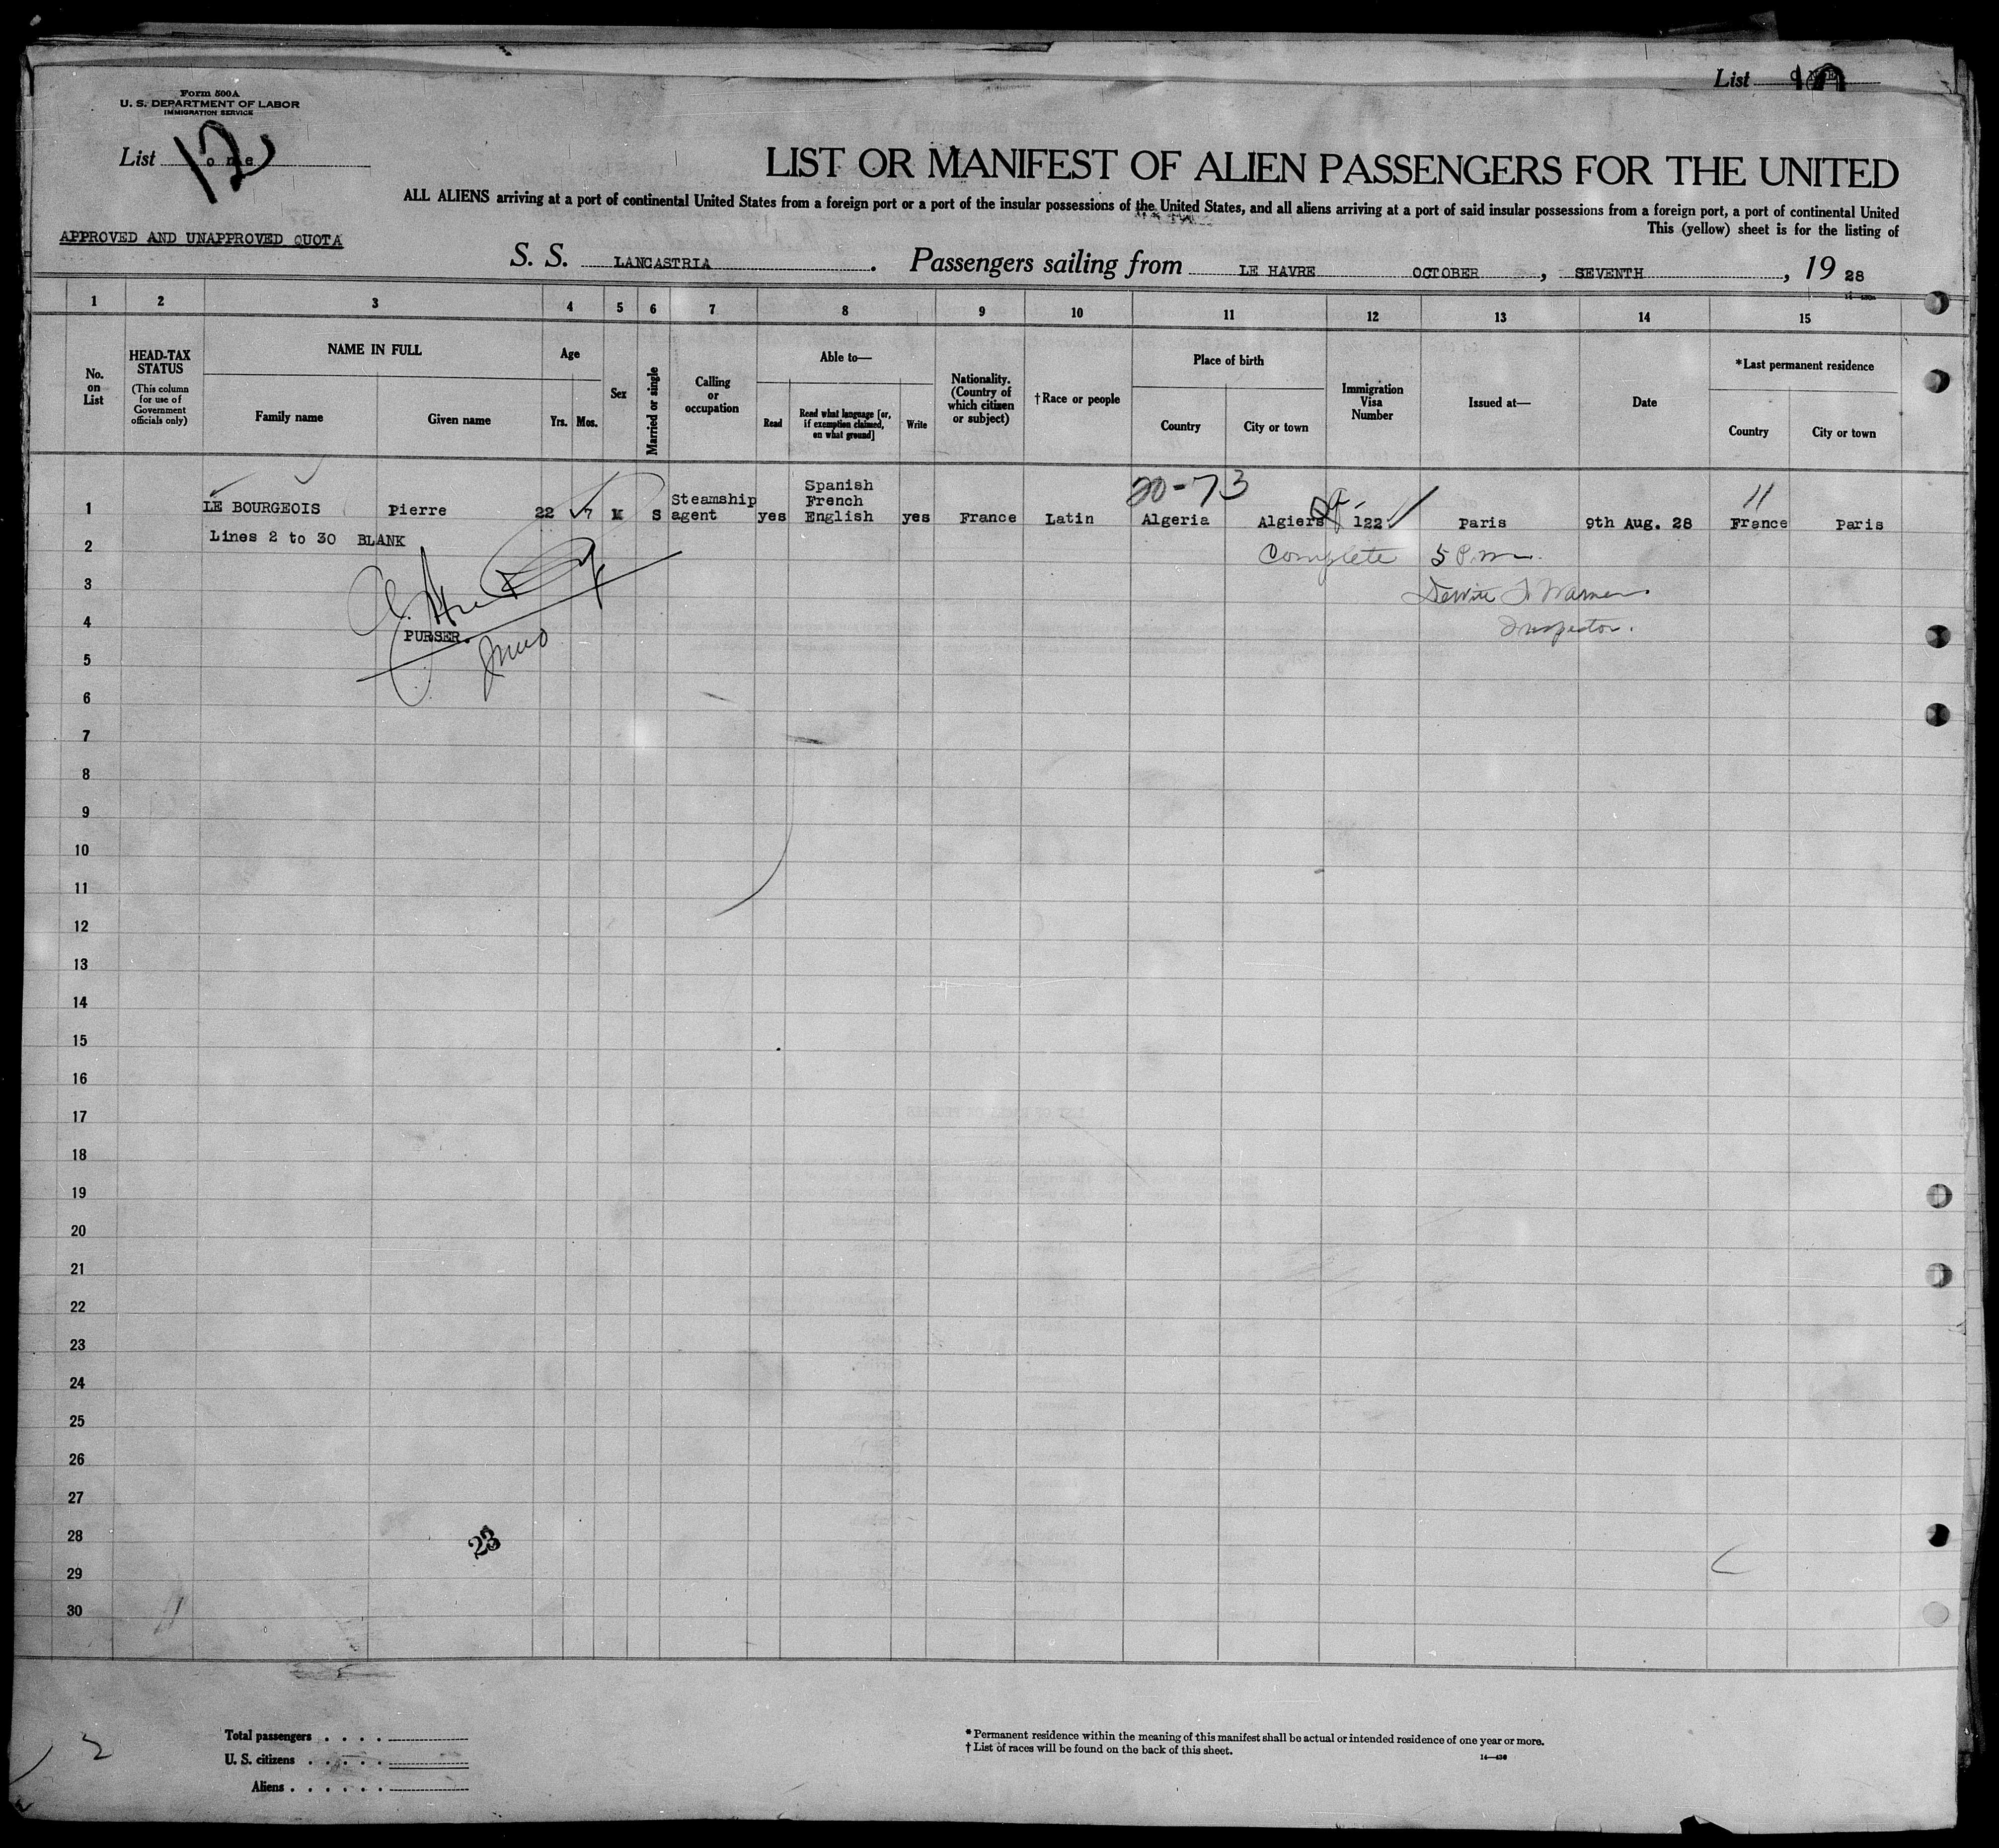 List ONE
Form 500A
U. S. DEPARTMENT OF LABOR
IMMIGRATION SERVICE
List one 12
LIST OR MANIFEST OF ALIEN PASSENGERS FOR THE UNITED
ALL ALIENS arriving at a port of continental United States from a foreign port or a port of the insular possessions of the United States, and all aliens arriving at a port of said insular possessions from a foreign port, a port of continental United
This (yellow) sheet is for the listing of
APPROVED AND UNAPPROVED QUOTA
S. S. LANCASTRIA. Passengers sailing from LE HAVRE OCTOBER, SEVENTH, 19 28
1 2 3 4 5 6 7 8 9 10 11 12 13 14 15
No. on List
HEAD-TAX STATUS
(This column for use of Government officials only)
NAME IN FULL
Family name Given name
Age
Yrs. Mos.
Sex
Married or single
Calling or occupation
Able to—
Read
Read what language [or, if exemption claimed, on what ground]
Write
Nationality. (Country of which citizen or subject)
†Race or people
Place of birth
Country City or town
Immigration Visa Number
Issued at—
Date
*Last permanent residence
Country City or town
20-73 11
1 LE BOURGEOIS Pierre 22 7 M S Steamship agent yes Spanish French English yes France Latin Algeria Algiers 122 Paris 9th Aug. 28 France Paris
Lines 2 to 30 BLANK
2 Complete 5 P.m.
3 Warner
4 Inspector.
PURSER.
5
6
7
8
9
10
11
12
13
14
15
16
17
18
19
20
21
22
23
24
25
26
27
28
23
29
30
Total passengers . . . .
U. S. citizens . . . . .
Aliens . . . . . .
2
* Permanent residence within the meaning of this manifest shall be actual or intended residence of one year or more.
† List of races will be found on the back of this sheet.
14—430